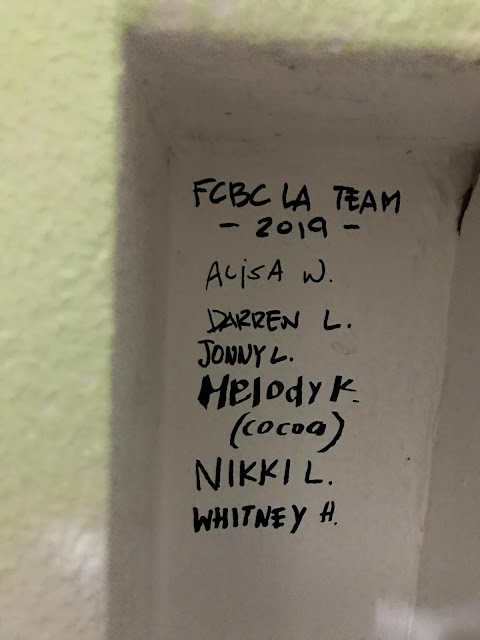 FCBC LA TEAM
- 2019 -
ALiSA W.
DARREN L.
JONNY L.
Melody K.
(cocoa)
NIKKI L.
WHITNEY H.